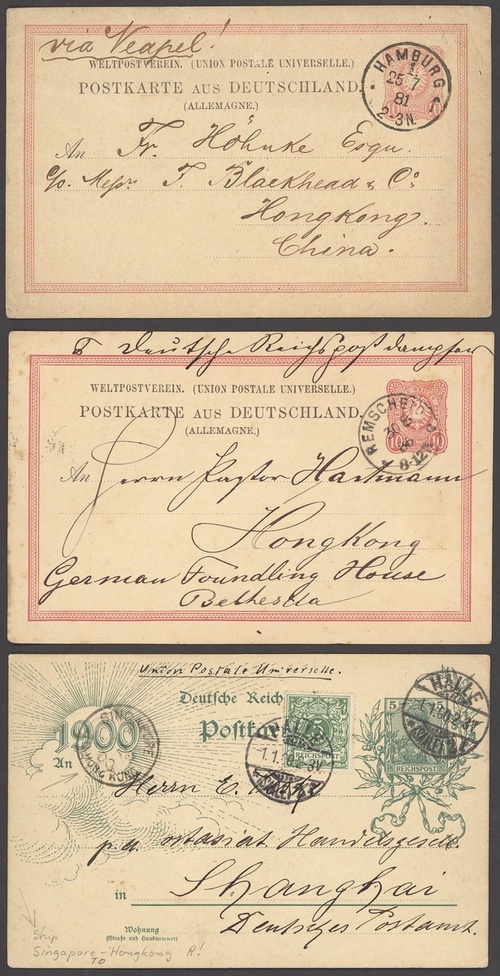 via Neapel!
WELTPOSTVEREIN. (UNION POSTALE UNIVERSELLE.)
POSTKARTE AUS DEUTSCHLAND.
(ALLEMAGNE.)
HAMBURG
1.
25 7
81
2-3N.
An Fr. Höhnke Esqu.
c/o Messr. F. Blackhead & Co.
Hongkong.
China.
Deutsche Reichspostdampfer
WELTPOSTVEREIN. (UNION POSTALE UNIVERSELLE.)
POSTKARTE AUS DEUTSCHLAND.
(ALLEMAGNE.)
REMSCHEID
8-12
10 10
An Herrn Pastor Hartmann
Hongkong
German Foundling House
Bethesda
Union Postale Universelle.
Deutsche Reich
Postk
1900
HALLE
1.1.00.2-3V.
(SAALE) 2
5
REICHSPOST
HALLE
1.1.
2-3V.
(SAALE) 2
5
REICHSPOST
SING
HONG KONG
An
Herrn E.
p.a. ostasiat Handelsgesell
in Shanghai
Deutsches Postamt.
Wohnung
(Straße und Hausnummer)
Ship
Singapore - TO Hongkong R!